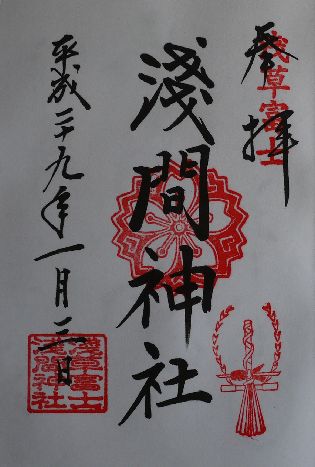 奉拝
浅草富士
淺間神社
平成二十九年一月三日
浅草富士
浅間神社